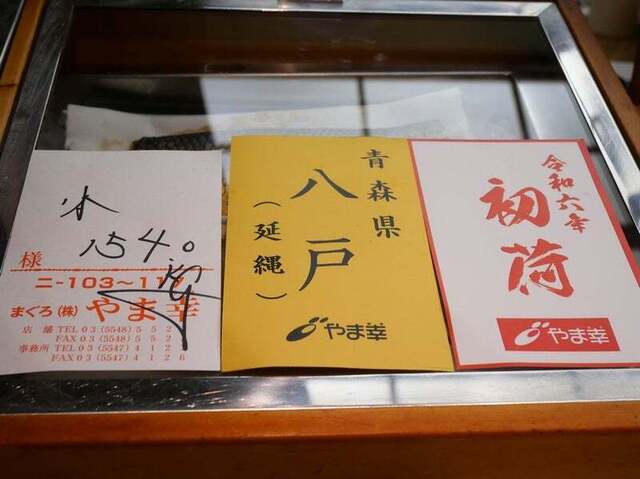 154.0
様
ニ-103~117
まぐろ(株)やま幸
店舗 TEL 03(5548)5552
FAX 03(5548)552
事務所 TEL 03(5547)412
FAX 03(5547)4126
青森県
八戸
(延縄)
やま幸
令和六年
初荷
やま幸